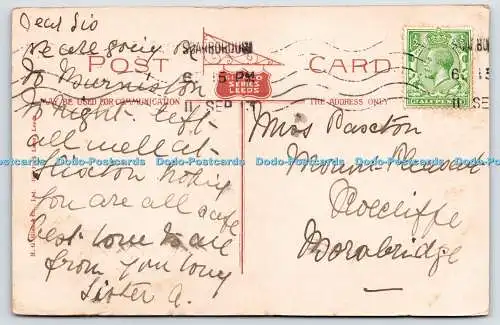 Dear Sis
we are going
to Burniston
to night left
all well at
hoping
you are all safe
best love to all
from your loving
Sister A.
POST CARD
MAY BE USED FOR COMMUNICATION
THE ADDRESS ONLY
SERIES
LEEDS
SCARBOROUGH
6 15 PM
11 SEP 13
HALFPENNY
Miss Paxton
Mount Pleasant
Roecliffe
Borobridge
Dodo-Postcards Dodo-Postcards Dodo-Postcards Dodo-Postcards Dodo-Postcards Dodo-Postcards